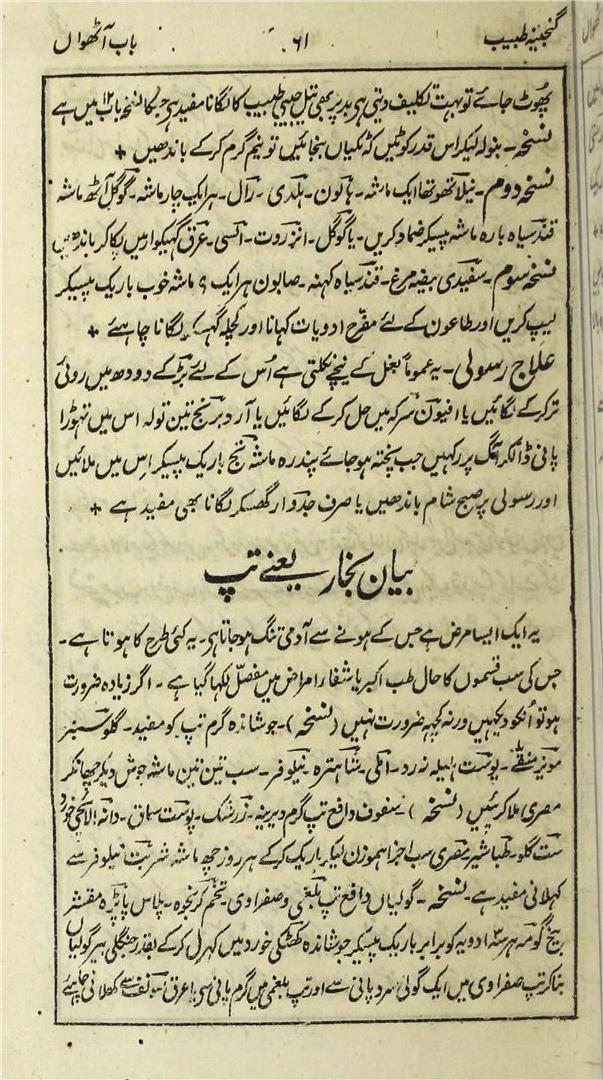 گنجینہ طبیب ۶۱ باب آٹھواں
پھوٹ جائے تو بہت تکلیف دیتی ہی بدپر بھی تیل جیبی طبیب کا لگانا مفید ہی جسکا نسخہ باب ۱۲ میں ہے
نسخہ۔ بنولہ لیکر اس قدر کوٹیں کہ ٹکیاں بنجائیں تو نیم گرم کرکے باندھیں +
نسخہ دوم۔ نیلا تھوتھا ایک ماشہ۔ ہالون۔ ہلدی۔ رال۔ ہر ایک چار ماشہ۔ گوگل آٹھ ماشہ
قند سیاہ بارہ ماشہ پیسکر ضماد کریں۔ یا گوگل۔ انزروت۔ السی۔ عرق گھیکوار میں پکا کر باندھیں
نسخہ سوم۔ سفیدی بیضہ مرغ۔ قند سیاہ کہنہ۔ صابون ہر ایک ۹ ماشہ خوب باریک پیسکر
لیپ کریں اور طاعون کے لئے مفرح ادویات کھانا اور کچلہ گھسکر لگانا چاہئے +
علاج رسولی۔ یہ عموماً بغل کے نیچے نکلتی ہے اُس کے لئے بڑ کے دودھ میں روئی
تر کرکے لگائیں یا افیون سرکہ میں حل کرکے لگائیں یا آرد برنج تین تولہ اس میں تھوڑا
پانی ڈالکر آگ پر رکھیں جب پختہ ہو جائے پندرہ ماشہ بیج باریک پیسکر اس میں ملائیں
اور رسولی پر صبح شام باندھیں یا صرف جدوار گھسکر لگانا بھی مفید ہے +
بیان بخار یعنے تپ
یہ ایک ایسا مرض ہے جس کے ہونے سے آدمی تنگ ہو جاتا ہی۔ یہ کئی طرح کا ہوتا ہے۔
جس کی سب قسموں کا حال طب اکبر یا شفاء امراض میں مفصل لکھا گیا ہے۔ اگر زیادہ ضرورت
ہو تو انکو دیکھیں ورنہ کچھ ضرورت نہیں (نسخہ)۔ جوشاندہ گرم تپ کو مفید۔ گلو سبز
مویز منقے۔ پوست ہلیلہ زرد۔ املی۔ شاہترہ۔ نیلوفر۔ سب تین تین ماشہ جوش دیکر چھانکر
مصری ملا کر پئیں (نسخہ)۔ سفوف دافع تپ گرم دیرینہ۔ زرشک۔ پوست سماق۔ دانہ الائچی خورد
ست گلو۔ طباشیر۔ مصری سب اجزا ہموزن لیکر باریک کرکے ہر روز چھ ماشہ شربت نیلوفر سے
کھلانی مفید ہے۔ نسخہ۔ گولیاں دافع تپ بلغمی و صفراوی۔ تخم کرنجوہ۔ پلاس پاپڑہ مقشر
بیخ گومہ ہر سہ ادویہ کو برابر باریک پیسکر جوشاندہ کٹکی خورد میں کھرل کرکے بقدر جنگلی بیر گولیاں
بنا کر تپ صفراوی میں ایک گولی سرد پانی سے اور تپ بلغمی میں گرم پانی سی یا عرق سے کھلانی چاہئے